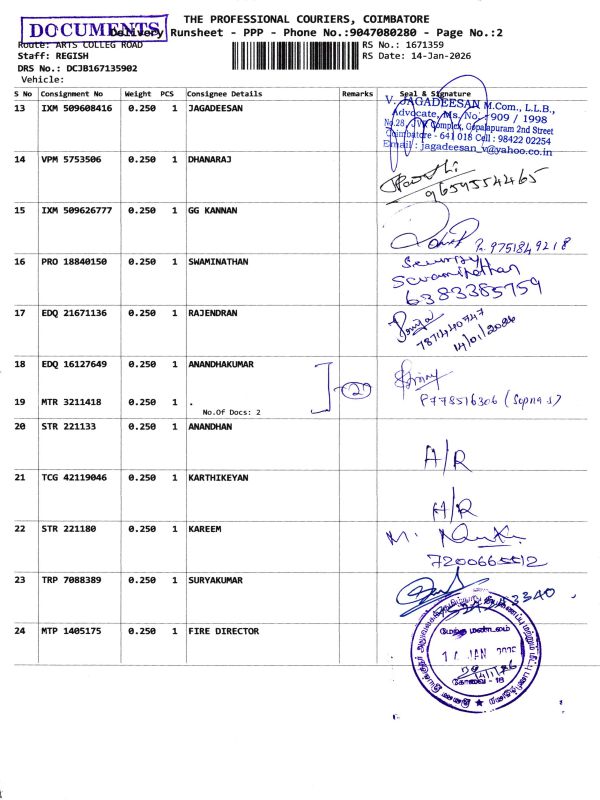 DOCUMENTS
THE PROFESSIONAL COURIERS, COIMBATORE
Delivery Runsheet - PPP - Phone No.:9047080280 - Page No.:2
Route: ARTS COLLEG ROAD RS No.: 1671359
Staff: REGISH RS Date: 14-Jan-2026
DRS No.: DCJB167135902
Vehicle:
S No Consignment No Weight PCS Consignee Details Remarks Seal & Signature
13 IXM 509608416 0.250 1 JAGADEESAN
V. JAGADEESAN M.Com., L.L.B.,
Advocate, Ms. No: 909 / 1998
Complex, Gopalapuram 2nd Street
Coimbatore - 641 018 Cell : 98422 02254
Email : jagadeesan_v@yahoo.co.in
14 VPM 5753506 0.250 1 DHANARAJ
9659554465
15 IXM 509626777 0.250 1 GG KANNAN
9751849218
16 PRO 18840150 0.250 1 SWAMINATHAN
Security
Swaminathan
6383385759
17 EDQ 21671136 0.250 1 RAJENDRAN
14/01/2026
18 EDQ 16127649 0.250 1 ANANDHAKUMAR
2
19 MTR 3211418 0.250 1 .
No.Of Docs: 2
P778516306 (Sapna s)
20 STR 221133 0.250 1 ANANDHAN
A/R
21 TCG 42119046 0.250 1 KARTHIKEYAN
A/R
22 STR 221180 0.250 1 KAREEM
M.
7200665512
23 TRP 7088389 0.250 1 SURYAKUMAR
24 MTP 1405175 0.250 1 FIRE DIRECTOR
மேற்கு மண்டலம்
14/1/26
கோவை - 18